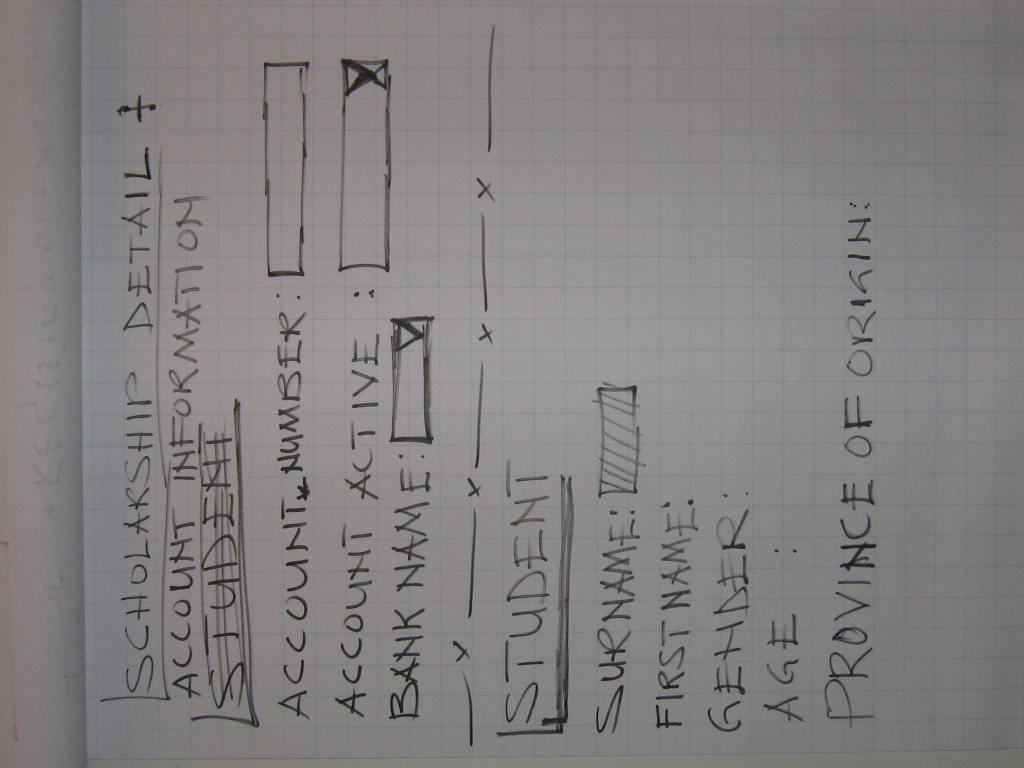 SCHOLARSHIP DETAIL +
ACCOUNT INFORMATION
STUDENT
ACCOUNT NUMBER:
ACCOUNT ACTIVE :
BANK NAME:
STUDENT
SURNAME:
FIRST NAME:
GENDER:
AGE :
PROVINCE OF ORIGIN: